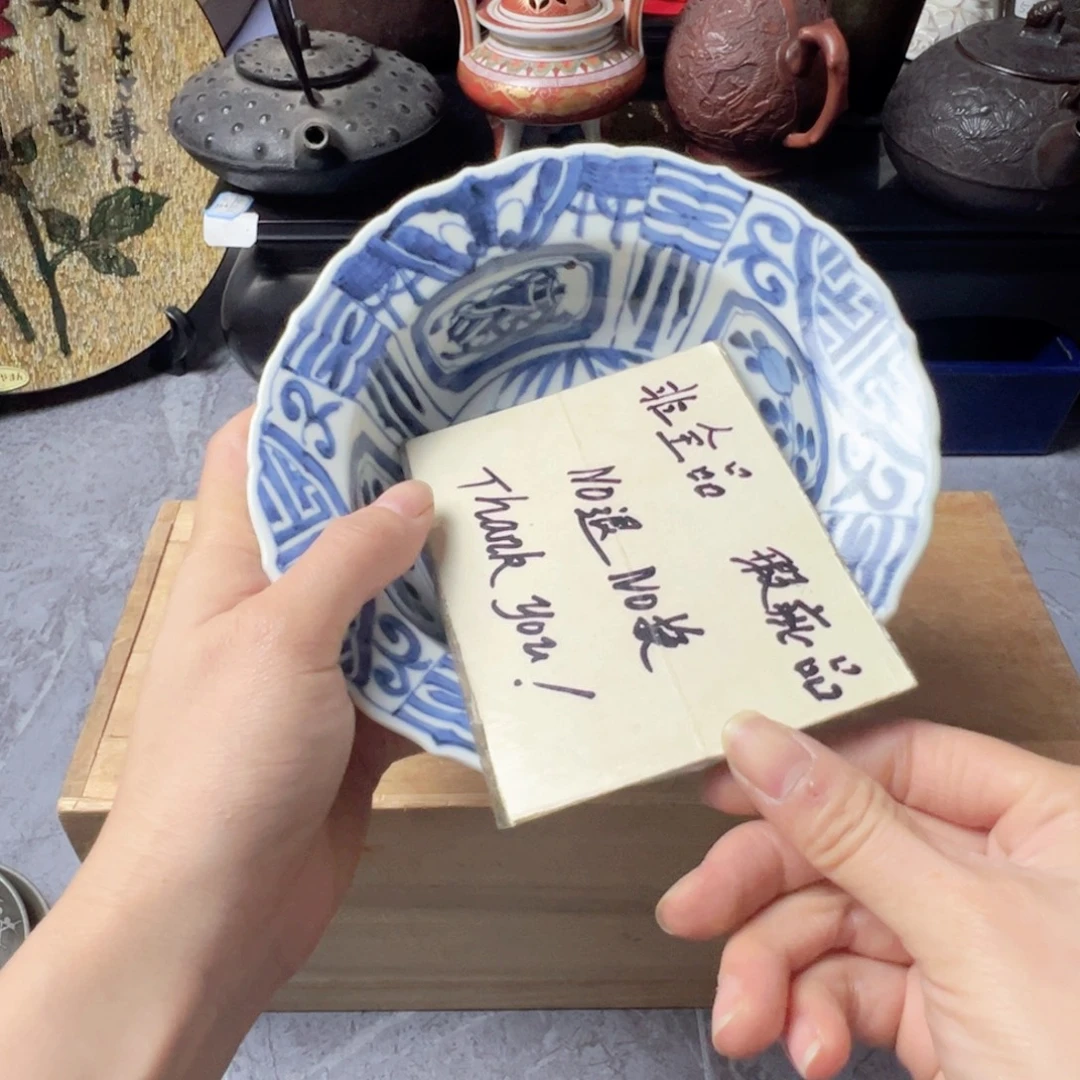 非全品 瑕疵品
NO退 NO换
Thank you!
よさ事は
美しき哉